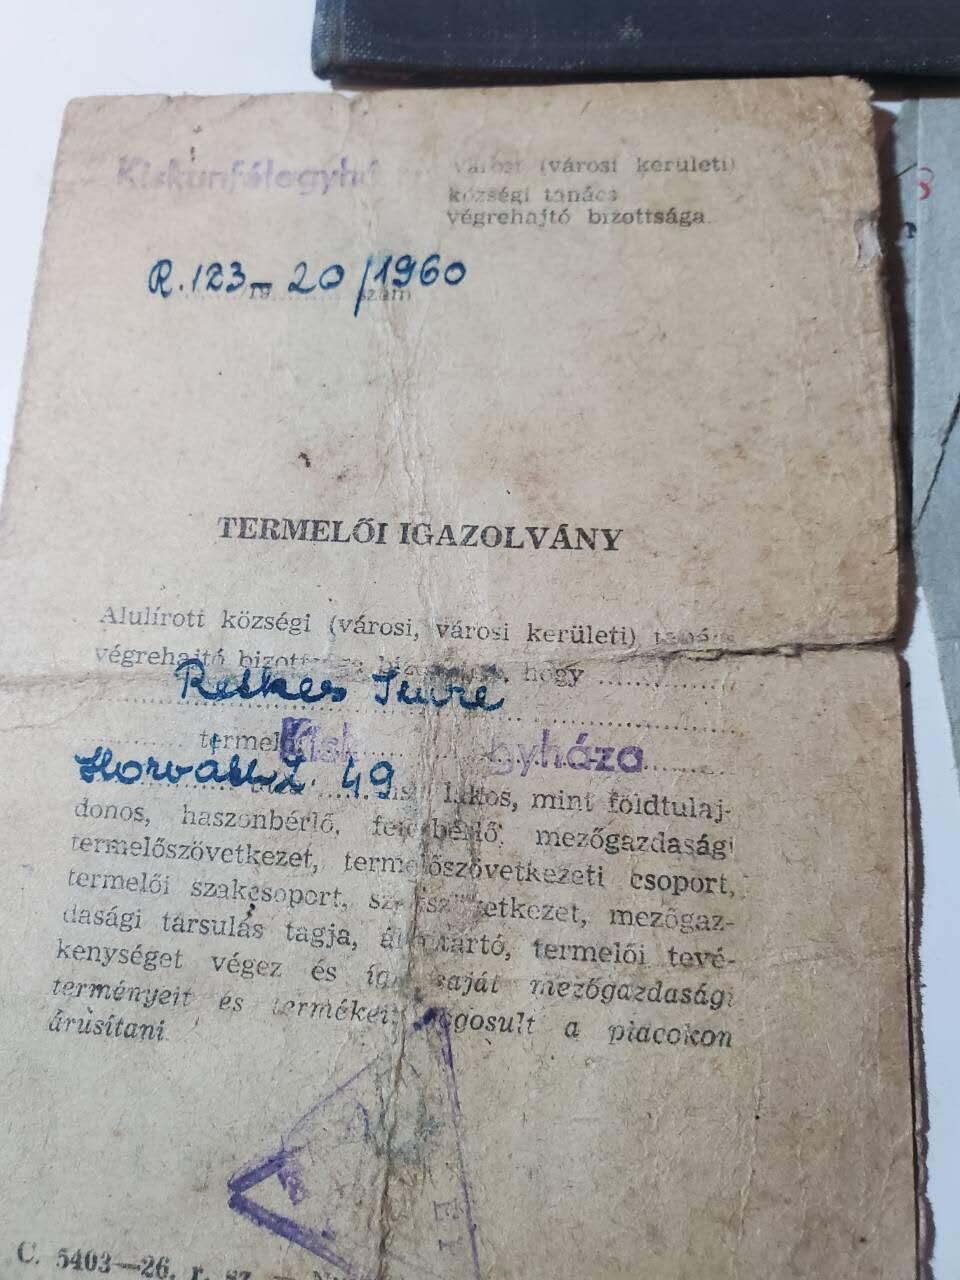 Kiskunfélegyhá városi (városi kerületi)
községi tanács
végrehajtó bizottsága.
R. 123 - 20/1960
19 szám
TERMELŐI IGAZOLVÁNY
Alulírott községi (városi, városi kerületi) tanács
végrehajtó bizottsága hogy
Retkes Imre
termelő Kisk gyháza
Horváth Z 49
lakos, mint földtulaj-
donos, haszonbérlő, felesbérlő, mezőgazdasági
termelőszövetkezet, termelőszövetkezeti csoport,
termelői szakcsoport, szakszövetkezet, mezőgaz-
dasági társulás tagja, állattartó, termelői tevé-
kenységet végez és így saját mezőgazdasági
terményeit és termékeit jogosult a piacokon
árusítani.
C. 5403—26. r. sz. —
8